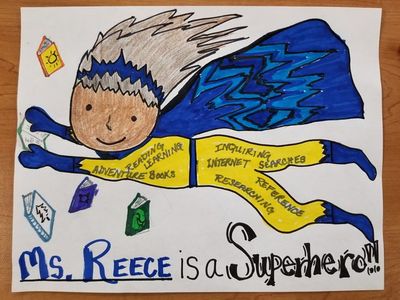 READING
LEARNING
ADVENTURE BOOKS
INQUIRING
INTERNET SEARCHES
REFERENCE
RESEARCHING
Ms. REECE is a Superhero!!!